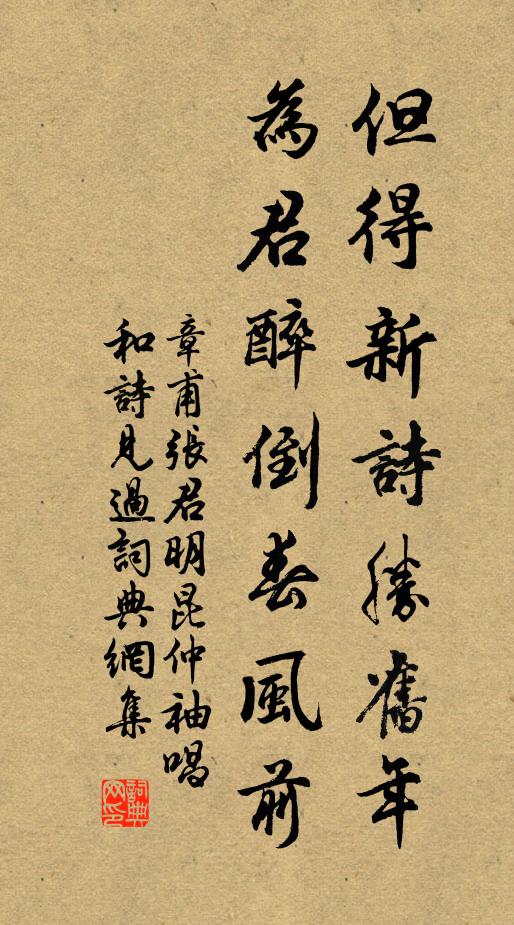 但得新詩勝舊年
為君醉倒春風前
章甫張君明昆仲袖唱
和詩見過詞典網集
詞典網印